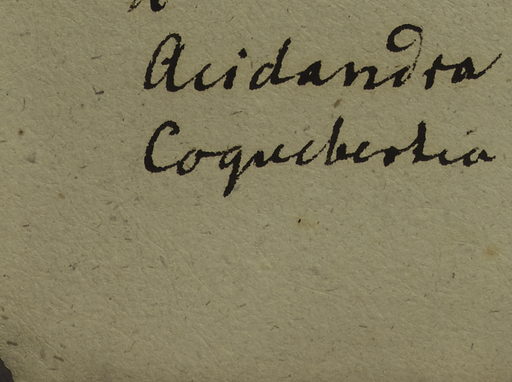 Acidandra
Coquebertia